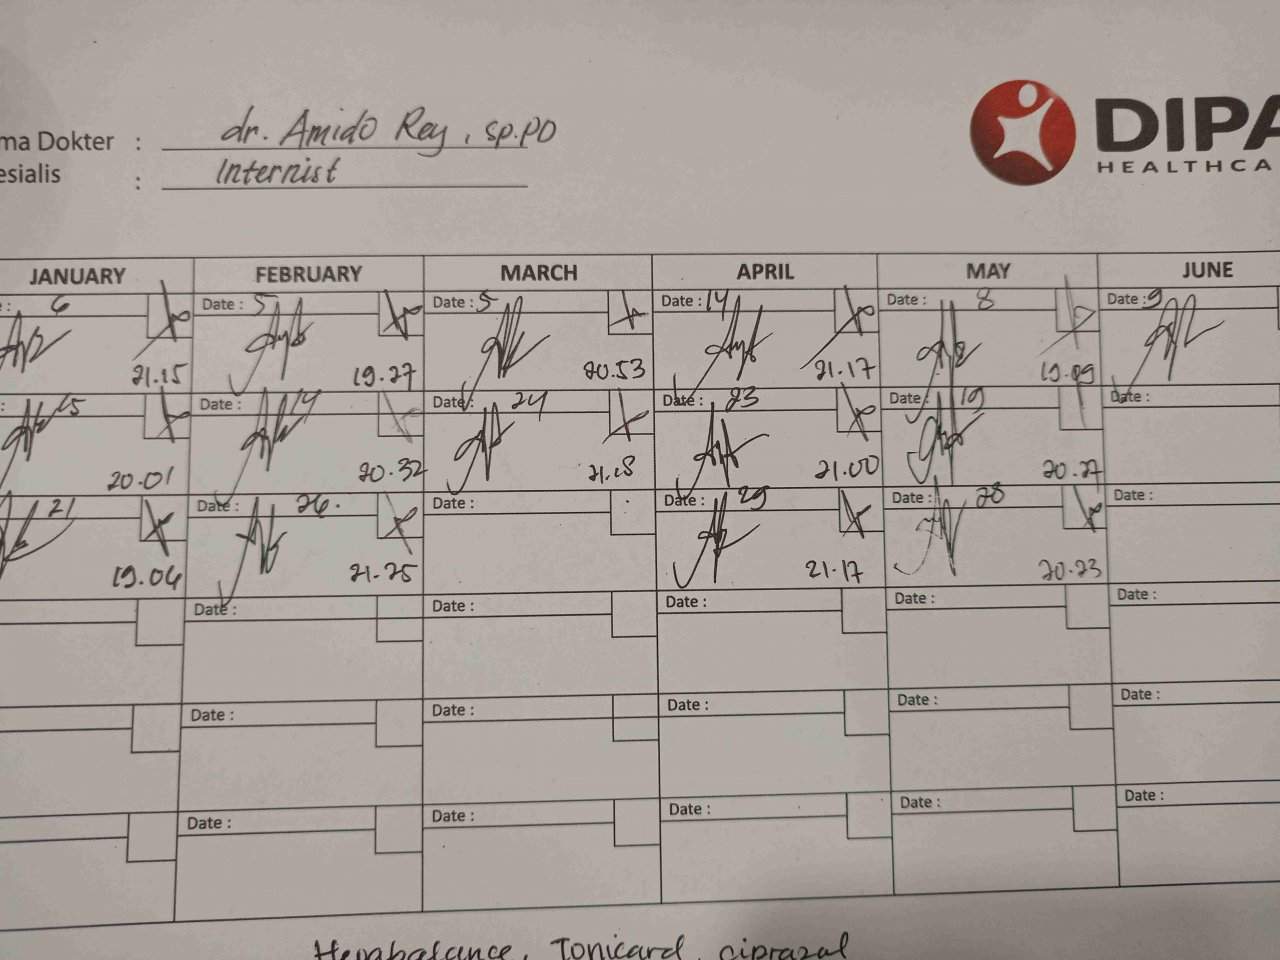 ma Dokter : dr. Amido Rey, sp.PD
esialis : Internist
DIPA
HEALTHCA
JANUARY FEBRUARY MARCH APRIL MAY JUNE
: 6 Date : 5 Date : 5 Date : 14 Date : 8 Date : 9
21.15 19.27 20.53 21.17 19.09
: 15 Date : 14 Date : 24 Date : 23 Date : 19 Date :
20.01 20.32 21.18 21.00 20.27
21 Date : 26. Date : Date : 29 Date : 28 Date :
19.04 21.25 21.17 20.23
Date : Date : Date : Date : Date :
Date : Date : Date : Date : Date :
Date : Date : Date : Date : Date :
Hepabalance, Tonicard, ciprazal